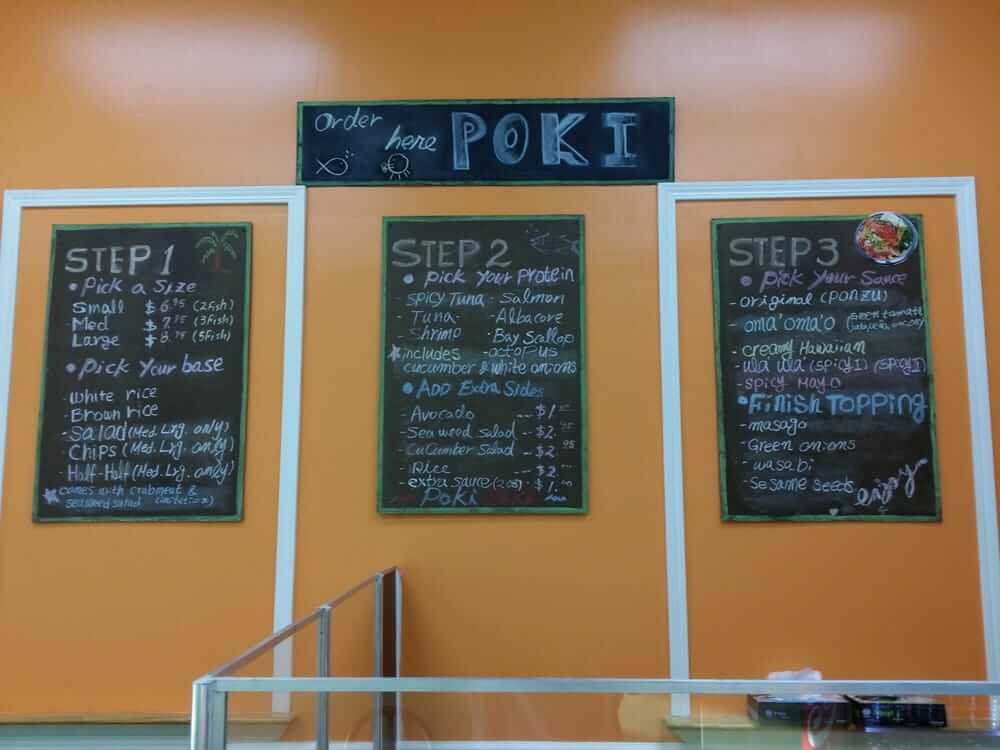 Order here POKI
STEP 1
Pick a Size
Small $6.95 (2Fish)
Med $7.95 (3Fish)
Large $8.95 (5Fish)
Pick Your base
White rice
Brown rice
-Salad (Med. Lrg. only)
Chips (Med. Lrg. only)
Half-Half (Med. Lrg. only)
comes with crabmeat &
seaweed salad (imitation)
STEP 2
Pick Your Protein
- Spicy Tuna - Salmon
- Tuna - Albacore
- Shrimp - Bay Scallop
includes - octopus
cucumber & white onions
ADD Extra Sides
- Avocado --- $1.00
- Seaweed Salad -- $2.95
- CuCumber Salad - $2.95
- Rice --- $2.00
- extra sauce (2oz) - $1.00
Poki
STEP 3
Pick Your Sauce
- original (ponzu)
- oma'oma'o
- creamy Hawaiian
- ula ula' (SPicyI) (SPicyI)
- spicy Mayo
Finish TOPPING
- masago
- Green onions
- wasabi
- Sesame seeds
enjoy